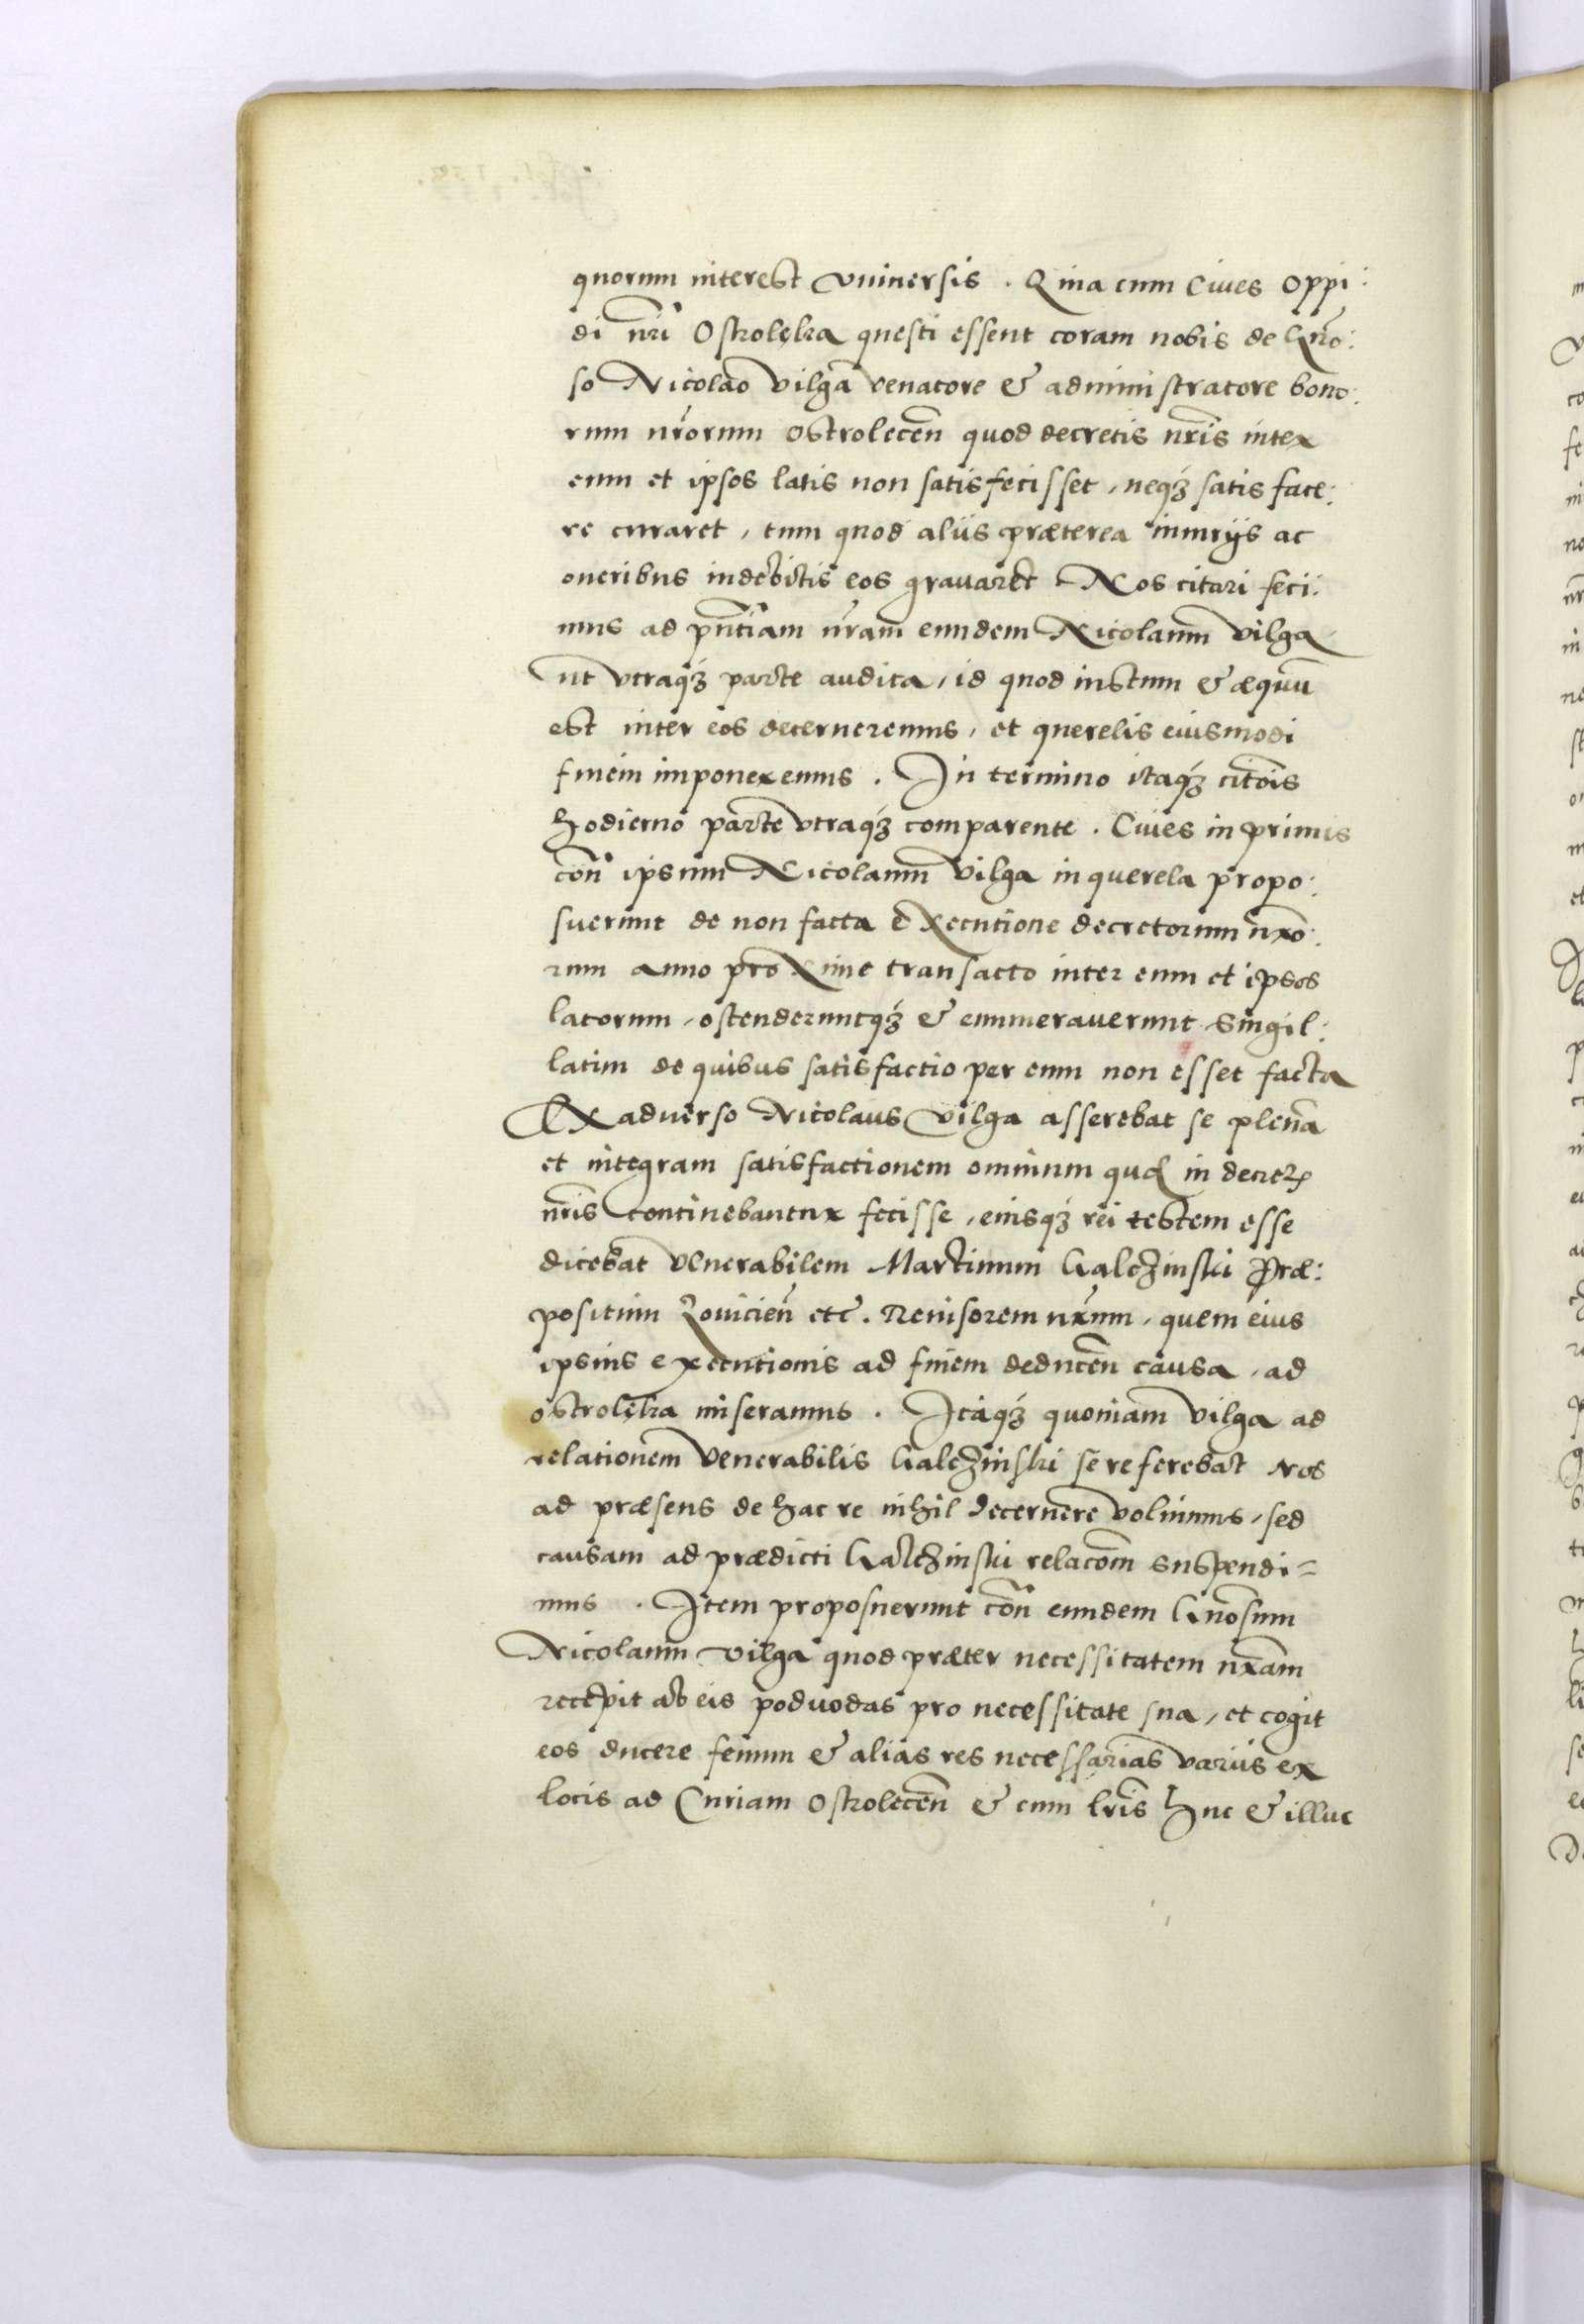 quorum interest vniuersis. Quia cum Ciues oppi:
di nri Ostrolęka questi essent coram nobis de Gno:
so Nicolao Vilga venatore & administratore bono:
rum nrorum Ostrolecen quod decretis nris inter
eum et ipsos latis non satisfecisset, neqȝ satis face:
re curaret, tum quod aliis præterea iniurijs ac
oneribus indebitis eos grauaret Nos citari feci:
mus ad pntiam nram eundem Nicolaum Vilga
ut vtraqȝ parte audita, id quod iustum & æquũ
est inter eos decerneremus, et querelis eiusmodi
finem imponeremus. In termino itaqȝ citois
hodierno parte vtraqȝ comparente. Ciues in primis
con ipsum Nicolaum Vilga in querela propo:
suerunt de non facta executione decretorum nro:
rum anno proxime transacto inter eum et ipsos
latorum, ostenderuntqȝ & enumerauerunt singil:
latim de quibus satisfactio per eum non esset facta
Ex aduerso Nicolaus Vilga asserebat se plenã
et integram satisfactionem omnium quæ in decret
nris continebantur fecisse, eiusqȝ rei testem esse
dicebat venerabilem Martinum Galczinski Præ:
positum Louicien etc. Reuisorem nrum, quem eius
ipsius executionis ad finem deducen causa, ad
ostrolęka miseramus. Itaqȝ quoniam Vilga ad
relationem venerabilis Galczinski se referebat Nos
ad præsens de hac re nihil decernere voluimus, sed
causam ad prædicti Galczinski relacom suspendi=
mus. Item proposuerunt con eundem Gnosum
Nicolaum Vilga quod præter necessitatem nram
recepit ab eis poduodas pro necessitate sua, et cogit
eos ducere fenum & alias res necessarias variis ex
locis ad Curiam Ostrolecen & cum lris huc & illuc